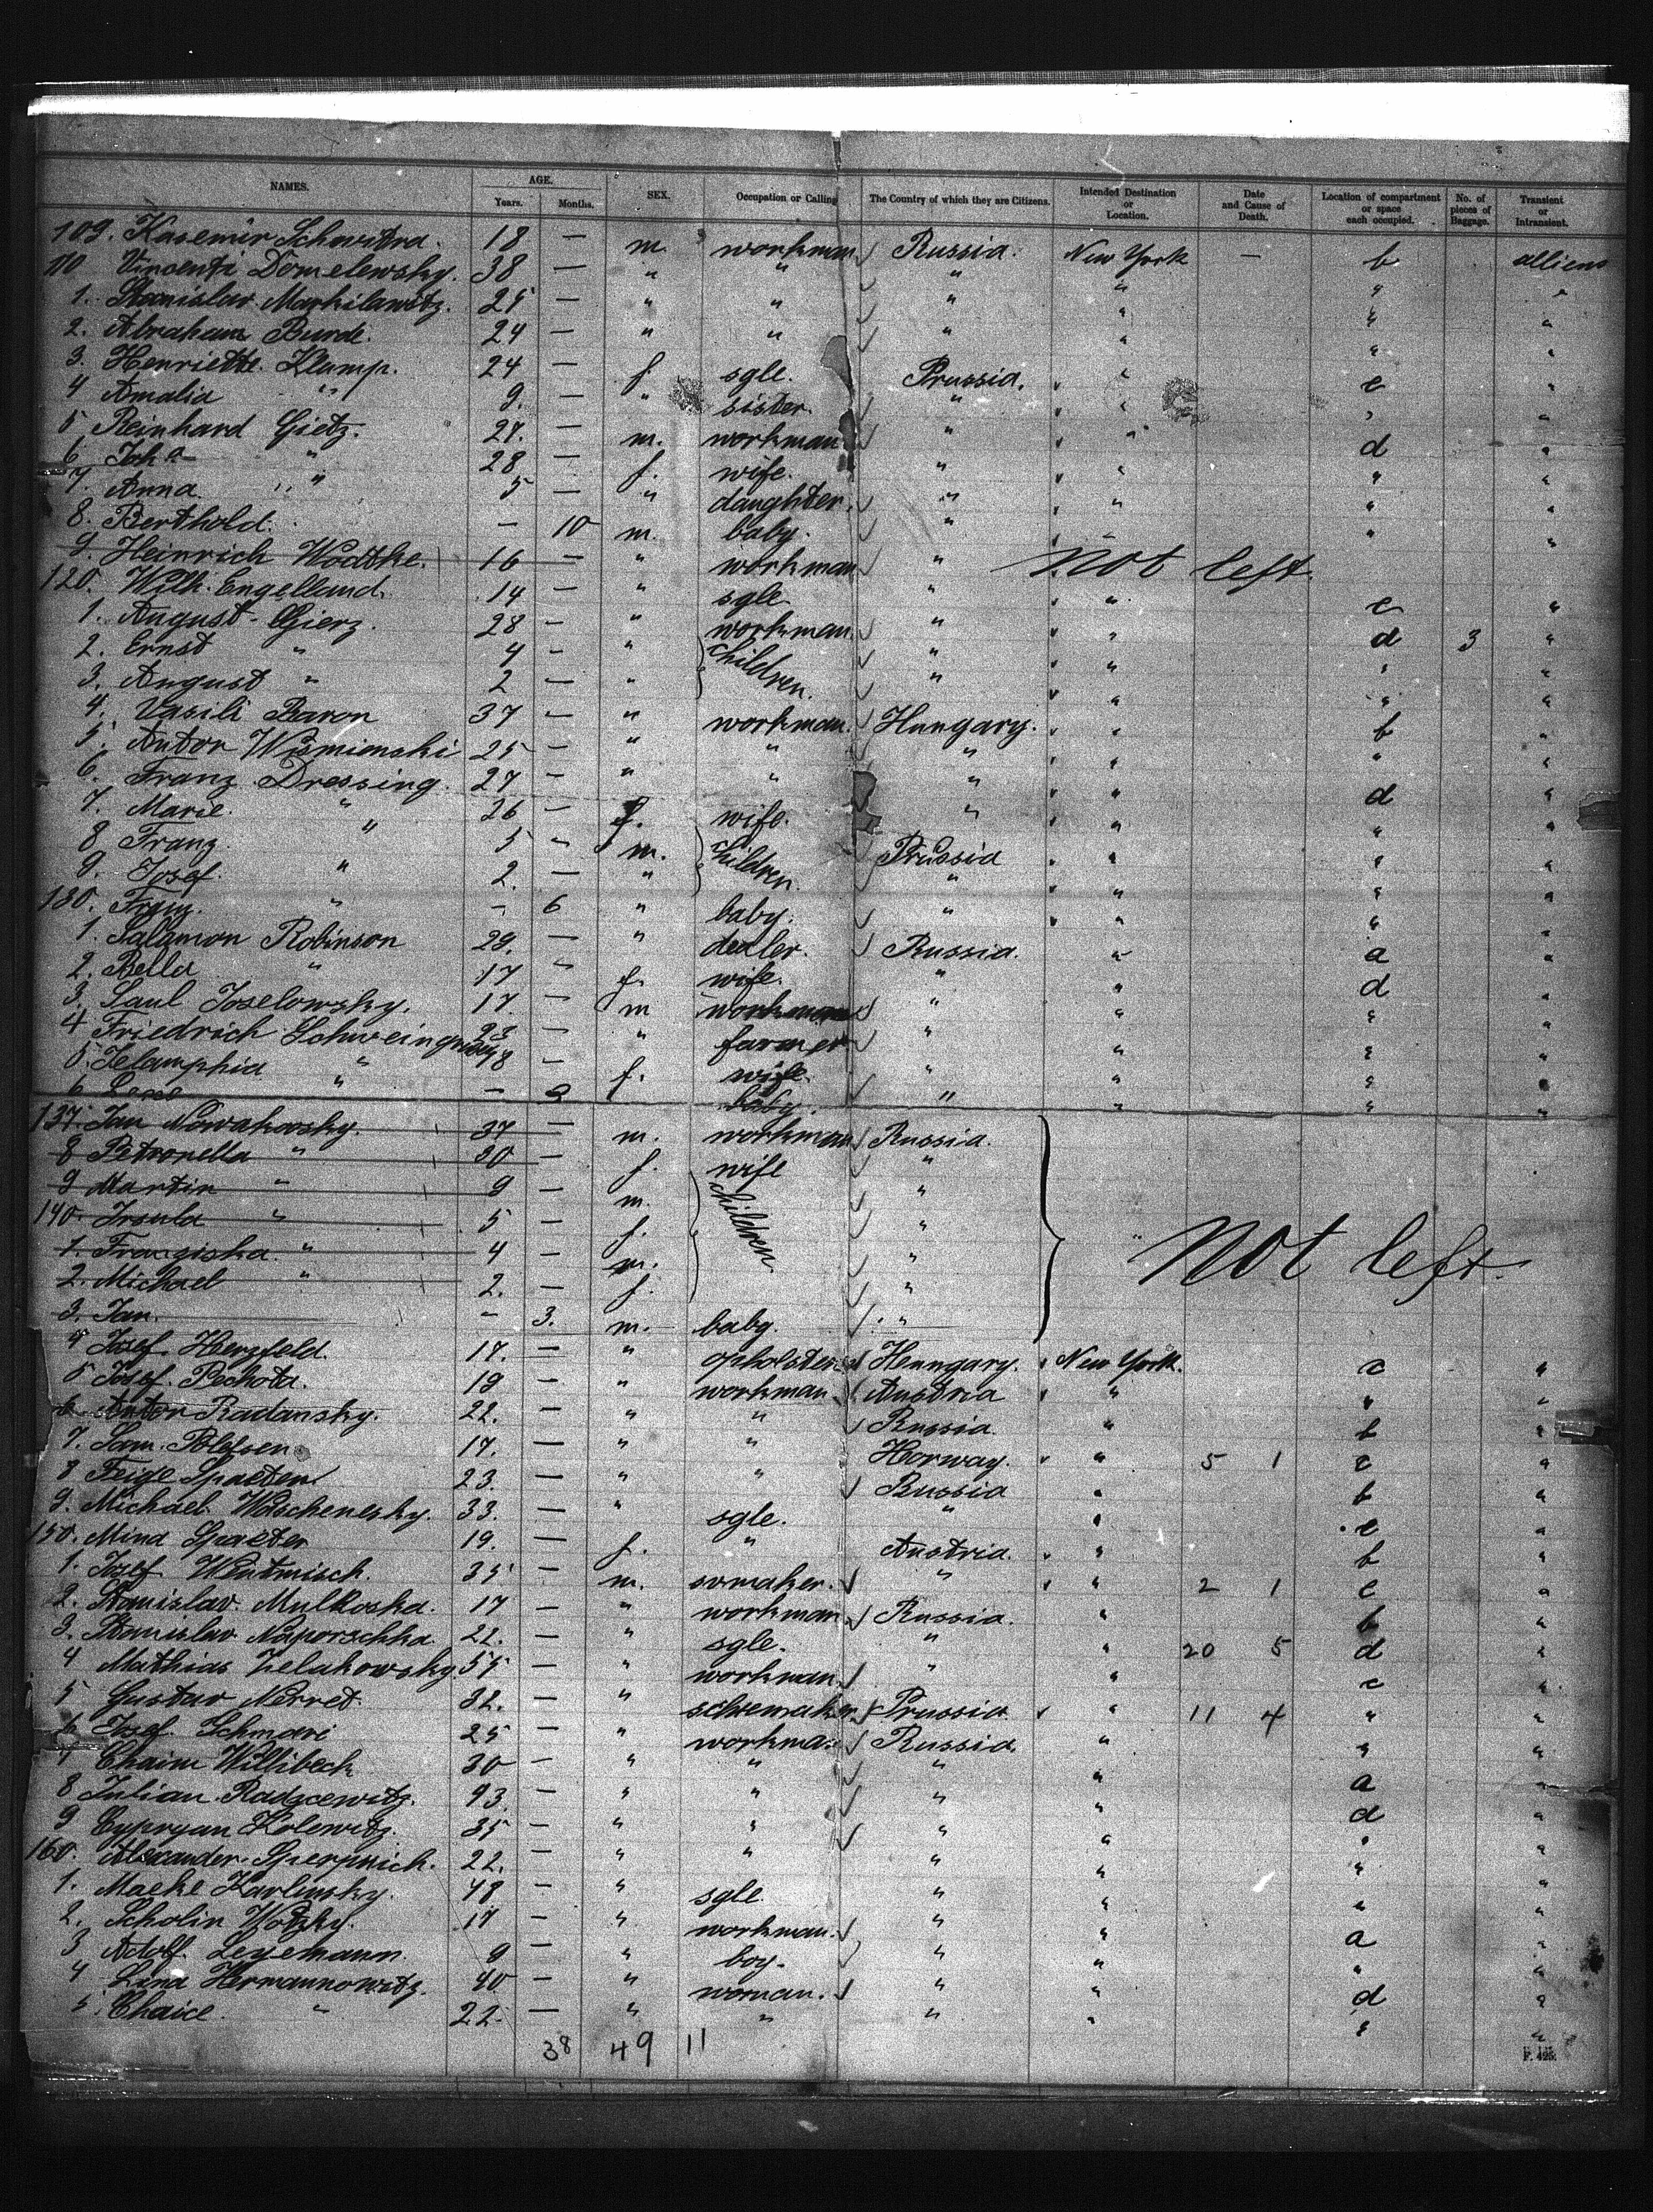 NAMES. AGE. Years. Months. SEX. Occupation or Calling The Country of which they are Citizens. Intended Destination or Location. Date and Cause of Death. Location of compartment or space each occupied. No. of pieces of Baggage. Transient or Intransient.
109. Kasemir 18 — m. workman Russia. New York — b alliens
110 Vincenti Domelewsky. 38 — " " " " " "
1. Stanislav 25 — " " " " " "
2. Abraham Burde. 24 — " " " " " "
3. Henriette Klamp. 24 — f sgle. Prussia. " e "
4 Amalia " 9. — " sister. " " " "
5 Reinhard Gietz. 27. — m. workman " " d "
6 " 28 — f. wife. " " " "
7. Anna. " 5 — " daughter. " " " "
8. Berthold. — 10 m. baby. " " " "
9. Heinrich Wodtke. 16 — " workman " not left.
120. Wilh. Engelland. 14 — " sgle " " e "
1. August Gierz. 28 — " workman. " " d 3 "
2. Ernst " 4 — " children. " " " "
3. August " 2 — " " " " "
4. Vasili Baron 37 — " workman. Hungary. " b "
5. Anton Wismienski 25 — " " " " " "
6. Franz Dressing. 27 — " " " " d "
7. Marie. " 26 — f. wife. " " " "
8 Franz. " 5 — m. children. Prussia " " "
9. Josef. " 2. — " " " " "
130. Franz. " — 6 " baby. " " " "
1. Salamon Robinson 29. — " dealer. Russia. " a "
2. Bella " 17 " f. wife. " " d "
3. Saul Joselowsky. 17. — m workman " " " "
4 Friedrich 23 — " farmer " " " "
5. " 18 — f. wife. " " " "
6 — baby. " " " "
137. Jan Nowakowsky. 37 — m. workman Russia.
8 Petronella " 20 — f. wife "
9 Martin " 9 — m. children. "
140. Irsula " 5 — f. " not left.
1. Franziska. " 4 — m. "
2. Michael " 2. — f. "
3. Jan. — 3. m. baby. "
4 Josef. Herzfeld. 17. — " Hunngary. New York. c "
5 Josef. Pechota. 19 — " workman. Austria " " "
6 Anton Radansky. 22. — " " Russia. " b "
7. Sam. 17. — " " Horway. " 5 1 c "
8 Feige Spaeter 23. — " " Russia " b "
9. Michael. Woschenesky. 33. — " sgle. " " e "
150. Mina Spaeter 19. — f. " Austria. " b "
1. Josef 35 — m. somaker. " " 2 1 c "
2. Stanislav. Mulkoska. 17 — " workman. Russia. " b "
3. Stanislav Naporschka. 22. — " sgle. " " 20 5 d "
4 Mathias Zelakowsky 55 — " workman. " " c "
5 Gustav Nerret. 32. — " Prussia " 11 4 " "
6 Josef. Schmari 25 — " workman Russia. " " "
7 Chaim Willibeck 30 — " " " " a "
8 Julian. Radzcewitz. — " " " " d "
9 Cypryan Kolewitz. 35 — " " " " " "
160. Alexander. 22. — " " " " " "
1. Maeke Karlinsky. 48 — " sgle. " " " "
2. Scholin 17 — " workman. " " a "
3 Adolf. Legemann. 9 — " boy. " " " "
4 Lina Hermannowitz. 40 — " woman. " " d "
5. Chaice. " 22 — " " " " " "
38 49 11
F. 425.